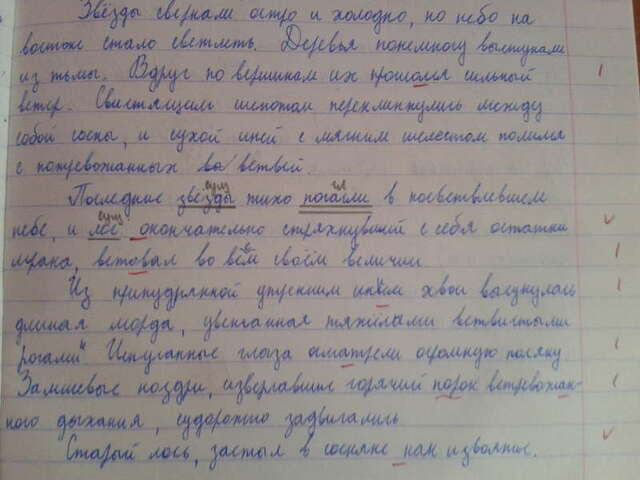 Звёзды сверкали остро и холодно, но небо на
востоке стало светлеть. Деревья понемногу выступали
из тьмы. Вдруг по вершинам их прошолся сильный
ветер. Свистящим шепотом перекликнулись между
собой сосны, и сухой иней с мягким шелестом полился
с потревожанных ветвей.
Последние звёзды тихо погасли в посветлевшем
небе, и лес окончательно стряхнувший с себя остатки
мрака, вставал во всём своём величии.
Из припудрянной утренним инеем хвои высунулась
длиная морда, увенчанная тяжёлыми ветвистыми
рогами. Испуганные глаза осматрели огромную поляну.
Замшевые ноздри, извергавшие горячий порок встревожан-
ного дыхания, судорожно задвигались
Старый лось, застыл в сосняке как изваяние.